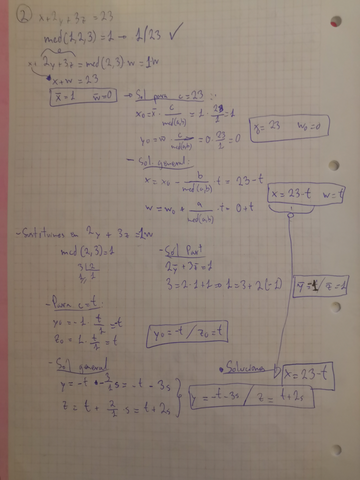 ② x+2y+3z=23
mcd(1,2,3)=1 → 1/23 ✓
2y+3z=mcd(2,3)w=1w
x+w=23
x̄=1 w̄=0
→ Sol para c=23:
x₀=x̄·c/mcd(a,b)=1·23/1
y₀=c/mcd(a,b)=0·23/1=0
x₀=23 w₀=0
- Sol general:
x=x₀-b/mcd(a,b) t=23-t
w=w₀+a/mcd(a,b) t=0+t
x=23-t w=t
- Sustituimos en 2y+3z=1w
mcd(2,3)=1
- Sol Part
2ȳ+3z̄=1
3=2·1+1⇒1=3+2(-1)
ȳ=-1/z̄=1
- Para c=t:
y₀=-1·t/1=-t
z₀=1·t/1=t
y₀=-t/z₀=t
- Sol general
y=-t-3/1s=-t-3s
z=t+2/1·s=t+2s
• Soluciones
x=23-t
y=-t-3s/z=t+2s